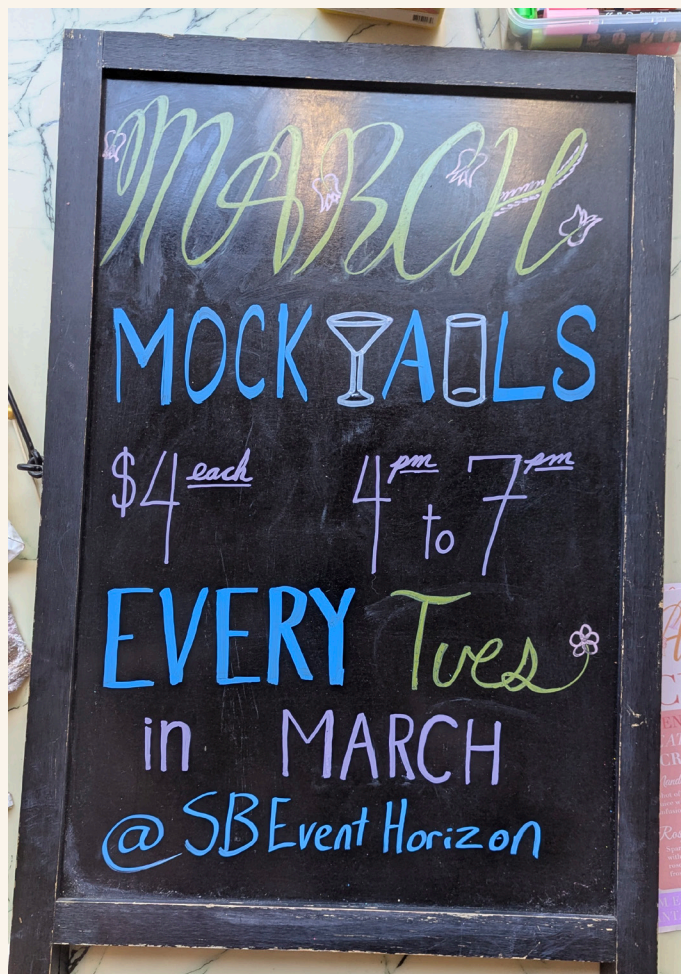 MARCH
MOCKTAILS
$4 each 4pm to 7pm
EVERY Tues
in MARCH
@SBEventHorizon